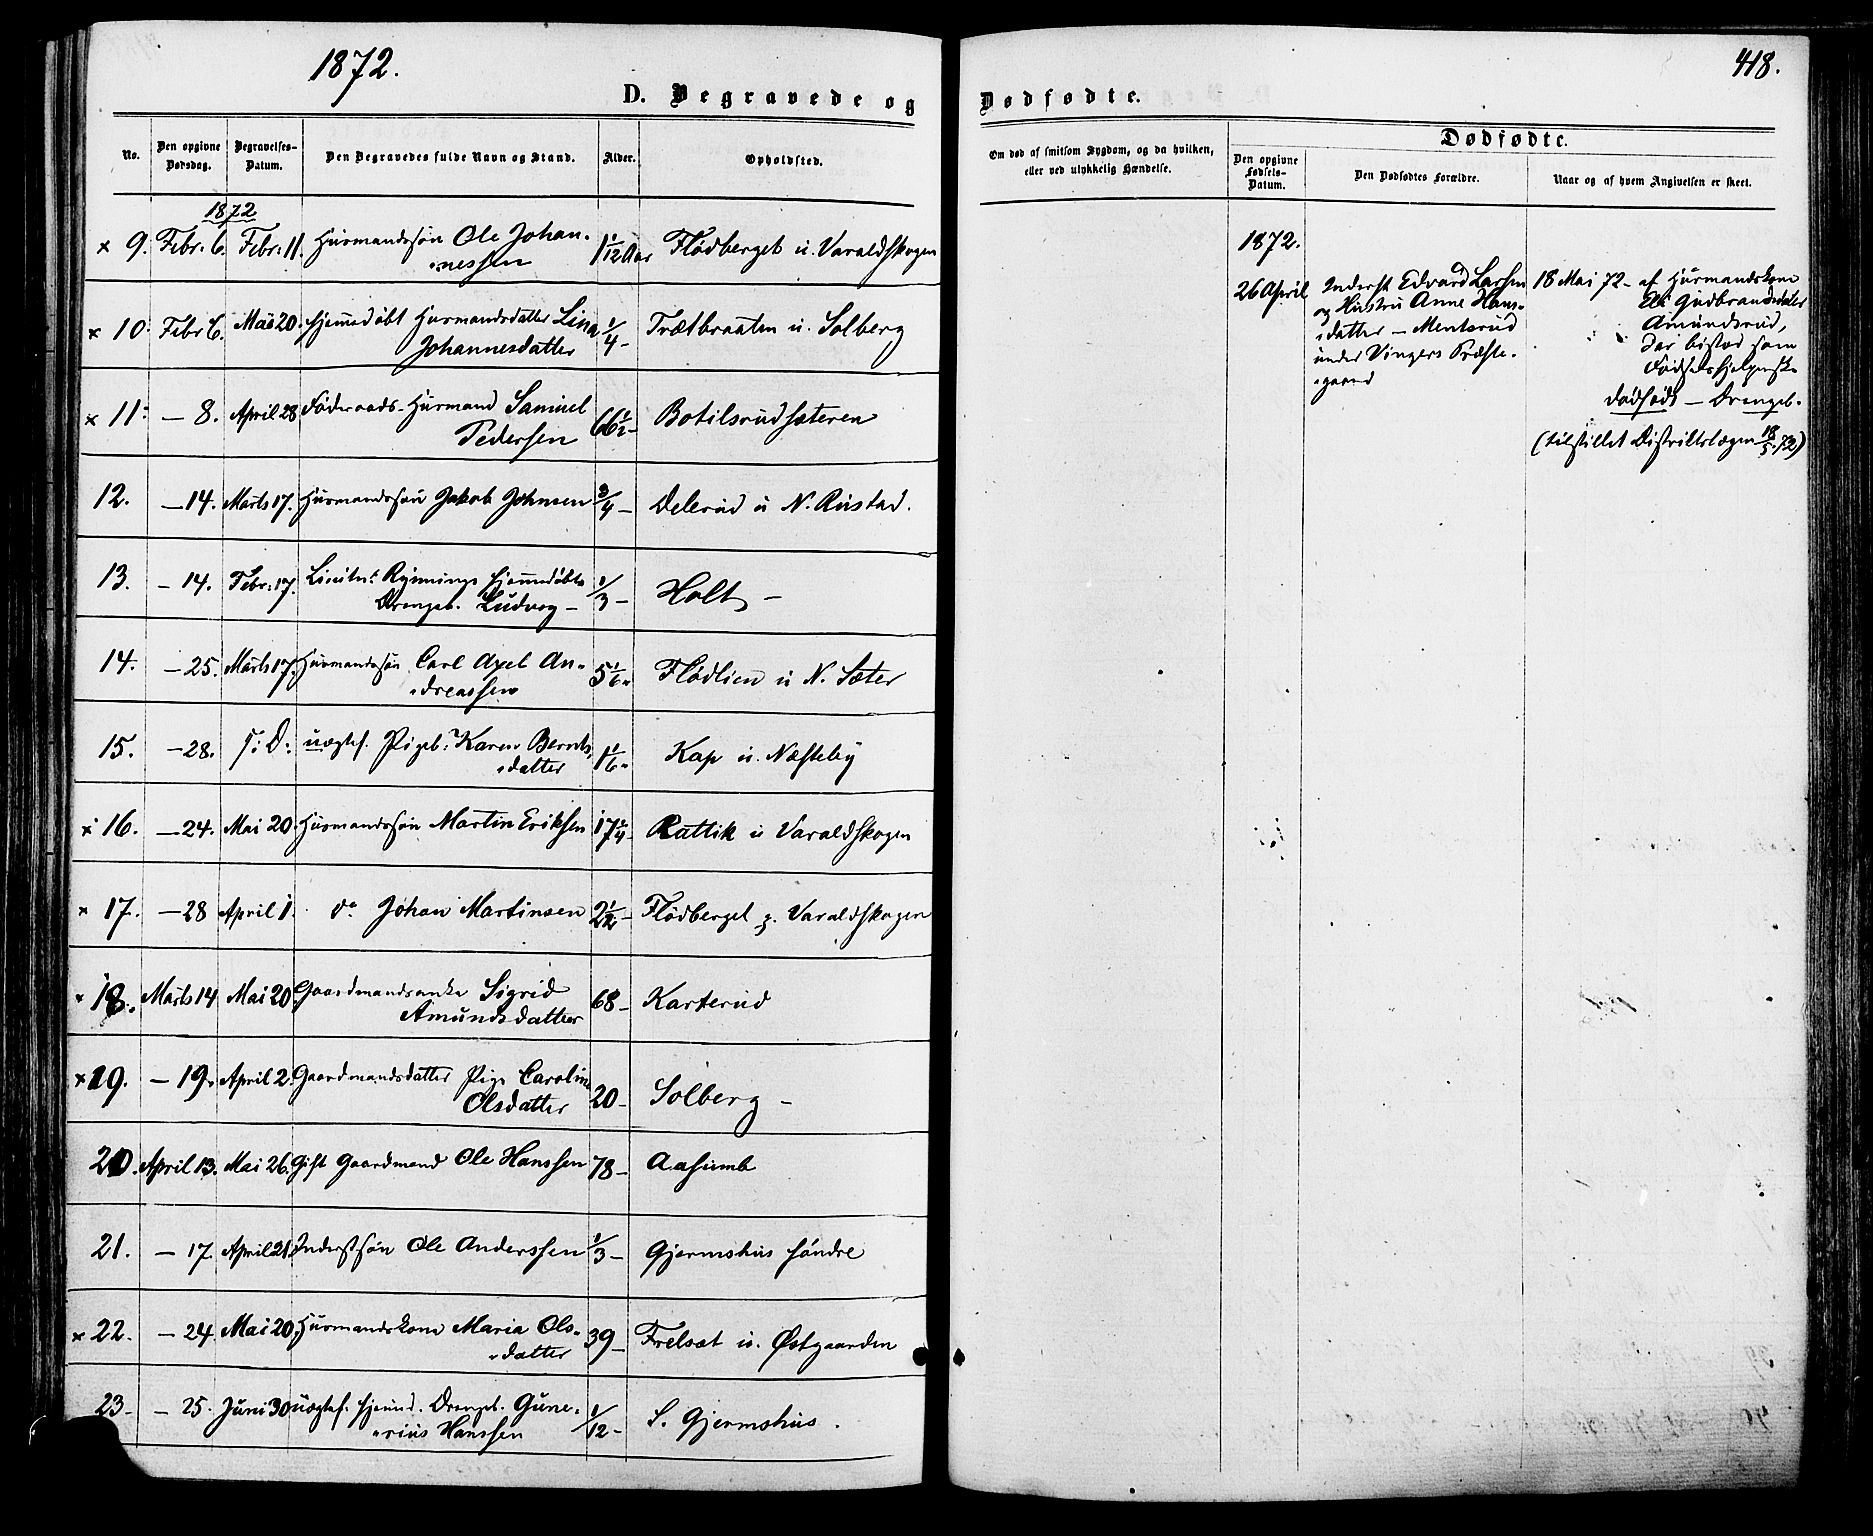 1872.
418.
D. Begravede og Dødfødte.
No.
Den opgivne Dødsdag.
Begravelses-Datum.
Den Begravedes fulde Navn og Stand.
Alder.
Opholdsted.
Om død af smitsom Sygdom, og da hvilken,
eller ved ulykkelig Hændelse.
Dødfødte.
Den opgivne Fødsels-Datum.
Den Dødfødtes Forældre.
Naar og af hvem Angivelsen er skeet.
1872
x 9. Febr: 6. Febr: 11. Husmandssøn Ole Johan-
"nessen 1 1/12 Aar Flødberget u. Varaldskogen
x 10. Febr 6. Mai 20. Hjemmedøbt Husmandsdatter Lina
Johannesdatter 1/4 - Trætbraaten u. Solberg
x 11: - 8. April 28 Føderaads-Husmand Samuel
Pedersen 66 1/2 - Botilsrudsæteren
12. - 14. Marts 17. Husmandssøn Jakob Johnsen 3/4 - Delerud u N. Rustad.
13. - 14. Febr: 17. Lieutn:t Rynnings hjemmedøbte
Drengeb. Ludvog - 1/3 - Holt -
14. - 25. Marts 17. Husmandssøn Carl Axel An-
"dreassen 5 1/6 " Flødlien u N. Sæter
15. - 28. S: D: uægtef. Pigeb: Karen Bernts
"datter 1 1/6 " Kap u. Næsteby
x 16. - 24. Mai 20. Husmandssøn Martin Eriksen 17 1/4 - Rattik u Varaldskogen
x 17. - 28 April 1. do Johan Martinsen 2 1/2 - Flødberget p. Varaldskogen
x 18. Marts 14 Mai 20. Gaardmandsenke Sigrid
Amundsdatter 68 - Karterud
x 19. - 19. April 2. Gaardmandsdatter Pige Carolin
Olsdatter 20 - Solberg -
20. April 13. Mai 26. Gift Gaardmand Ole Hanssen 78 - Aasumb
21. - 17. April 21. Inderstsøn Ole Anderssen 1/3 - Gjermshus søndre
x 22. - 24. Mai 20. Husmandskone Maria Ols-
"datter 39 - Frelsæt u. Østgaarden
23 - - 25. Juni 30 uægtef. hjemmd. Drengeb. Gune-
"rius Hanssen 1/12 - S. Gjermshus.
1872.
26 April
Inderst Edvard Larsen
og Hustru Anne Hans-
"datter - Mentsrud
under Vingers Præste-
"gaard
18 Mai 72 - af Husmandskone
Eli Gudbrandsdatter
Amundsrud,
der bistod som
Fødselshjelperske
dødfødt - Drengeb.
(tilstillet Distriktslægen 18/5. 72)